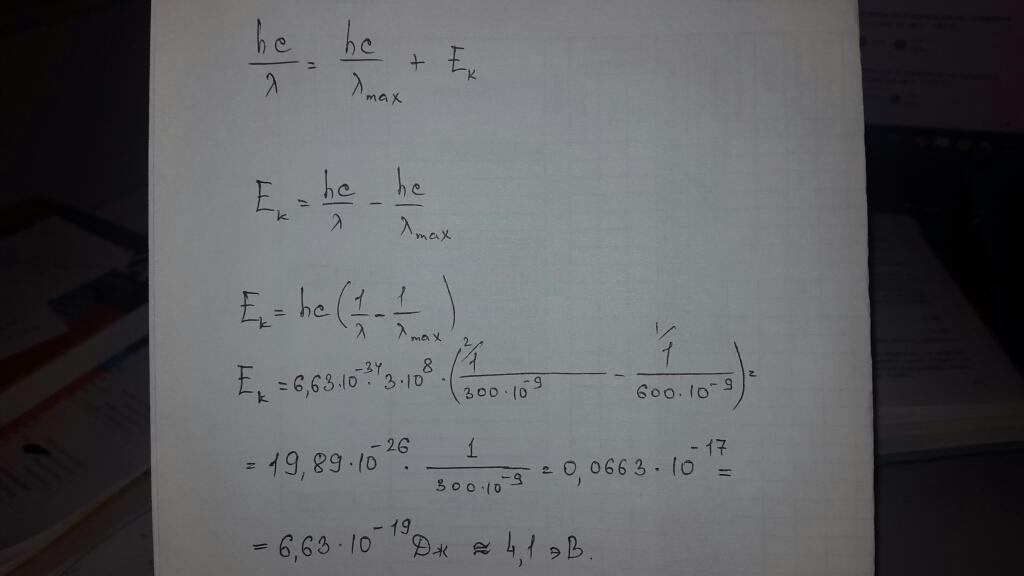 hc/λ = hc/λmax + Eк
Eк = hc/λ - hc/λmax
Eк = hc(1/λ - 1/λmax)
Eк = 6,63·10⁻³⁴·3·10⁸·(²⁄1/300·10⁻⁹ - ¹⁄1/600·10⁻⁹) =
= 19,89·10⁻²⁶· 1/300·10⁻⁹ = 0,0663·10⁻¹⁷ =
= 6,63·10⁻¹⁹ Дж ≈ 4,1 эВ.